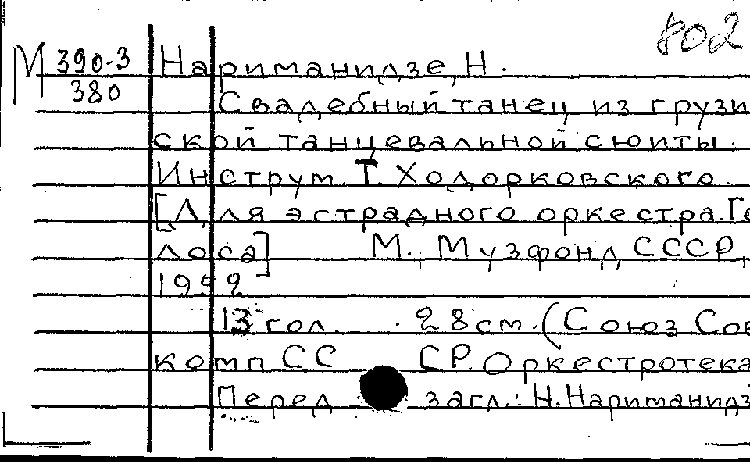 802
М 390-3
380
Нариманидзе, Н.
Свадебный танец из грузи
ской танцевальной сюиты.
Инструм. Т. Ходорковского.
[Для эстрадного оркестра. Го
лоса] М., Музфонд СССР,
1952
13 гол. 28 см. (Союз Сов
комп СС СР. Оркестротека
Перед загл.: Н. Нариманидз